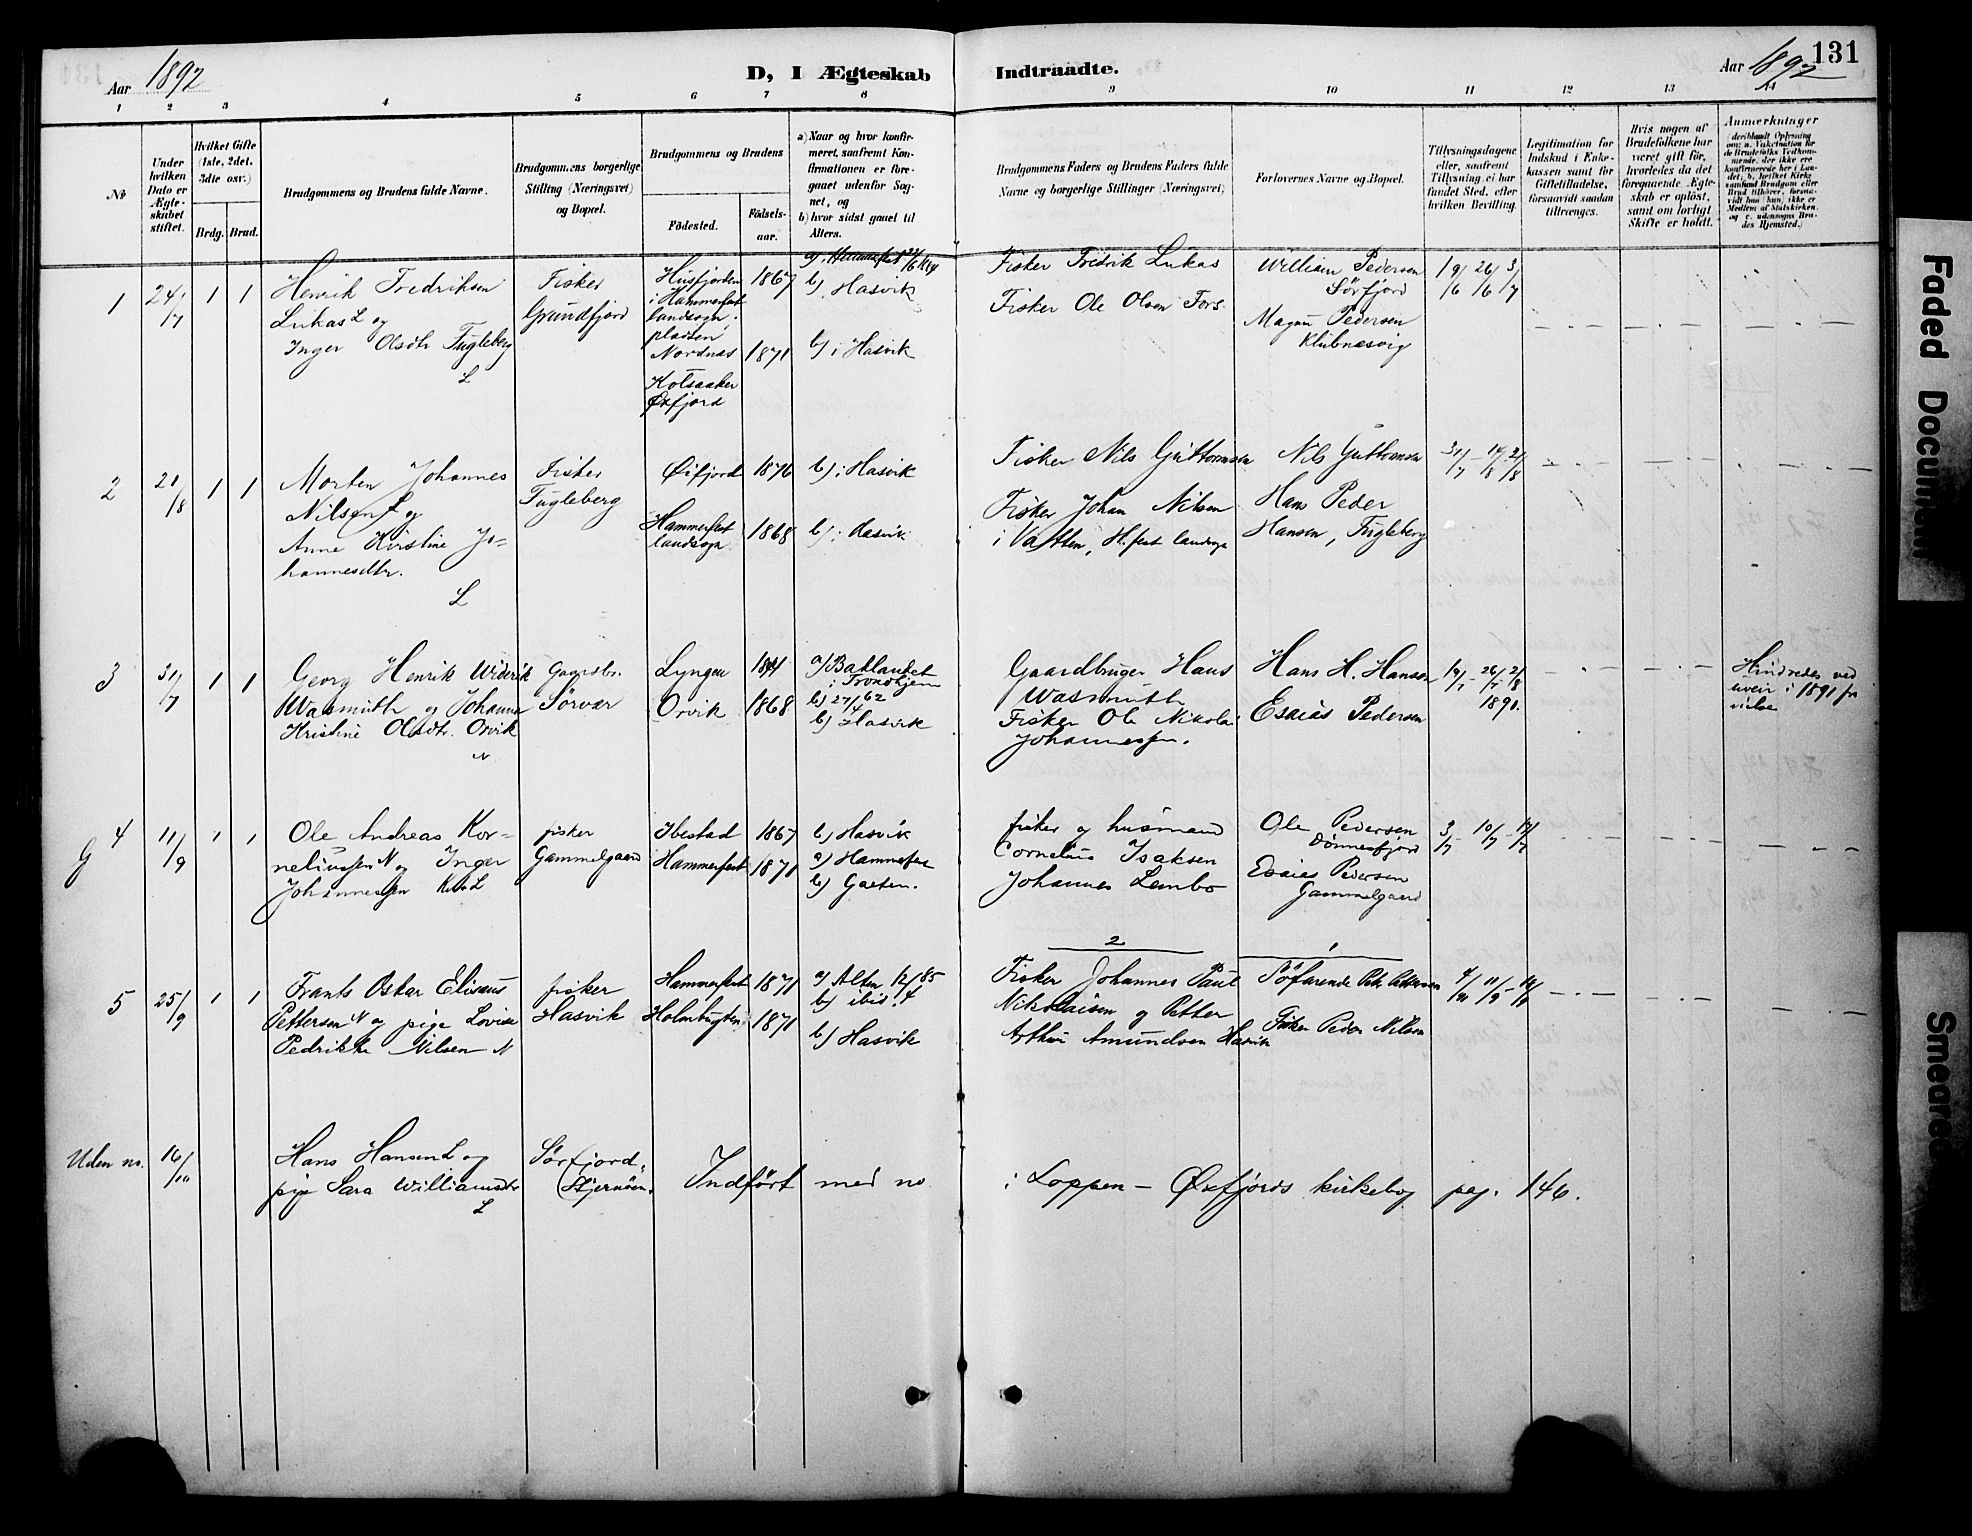 131
Aar 1892
D, I Ægteskab Indtraadte.
Aar 1892
1 2 3 4 5 6 7 8 9 10 11 12 13 14
No
Under hvilken Dato er Ægteskabet stiftet.
Hvilket Gifte (1ste, 2det, 3die osv.)
Brdg. Brud.
Brudgommens og Brudens fulde Navne.
Brudgommens borgerlige Stilling (Næringsvei) og Bopæl.
Brudgommens og Brudens
Födested.
Födsels-aar.
a) Naar og hvor konfirmeret, saafremt Konfirmationen er foregaaet udenfor Sognet, og
b) hvor sidst gaaet til Alters.
Brudgommens Faders og Brudens Faders fulde Navne og borgerlige Stillinger (Næringsvei)
Forlovernes Navne og Bopæl.
Tillysningsdagene eller, saafremt Tillysning ei har fundet Sted, efter hvilken Bevilling.
Legitimation for Indskud i Enkekassen samt for Giftetilladelse, forsaavidt saadan tiltrænges.
Hvis nogen af Brudefolkene har været gift för, hvorledes da det foregaaende Ægteskab er oplöst, samt om lovligt Skifte er holdt.
Anmerkninger
1 24/7 1 1
Henrik Fredriksen
Lukas L og
Inger Olsdtr Fugleberg
L
Fisker
Grundfjord
Husfjorden
i Hammerfest
landsogn.
pladsen
Nordnæs
Kotsaaker
Øxfjord
1867
1871
b) Hasvik
b) i Hasvik
Fisker Fredrik Lukas
Fisker Ole Olsen Fors
William Pedersen
Sörfjord
Magnu Pedersen
Klubnæsvig
19/6 26/6 3/7
2 21/8 1 1
Morten Johannes
Nilsen L og
Anne Kirstine Jo=
hannesdtr.
L
Fisker
Fugleberg
Øxfjord 1876
Hammerfest
landsogn 1868
b) i Hasvik
b) i Hasvik
Fisker Nils Guttormsen
Fisker Johan Nilsen
i Vatten, H.fest landsogn
Nils Guttormsen
Hans Peder
Hansen, Fugleberg
31/7 - 14/8 21/8
3 31/7 1 1
Georg Henrik Widerik
Wasmuth og Johanna
Kristine Olsdtr. Orvik
N
Gaardbr.
Sörvær
Lyngen
Orvik 1868
a) Baklandet
i Trondhjem
b) 27/4 62
b) Hasvik
Gaardbruger Hans
Wasmuth
Fisker Ole Nikolai
Johannessen.
Hans H. Hansen
Esaias Pedersen
19/7 - 26/7 2/8
1891.
Hindredes ved
uveir i 1891 fr
vielse
G 4 11/9 1 1
Ole Andreas Kor=
neliussen N og Inger
Johannessen Kv L
fisker
Gammelgaard
Ibestad 1867
Hammerfest 1871
b) Hasvik
a) Hammerfest
b) Gaeten.
fisker og husmand
Cornelius Isaksen
Johannes Lembo
Ole Pedersen
Dönnesfjord
Esaias Pedersen
Gammelgaard
3/7 - 10/7 - 17/7
5 25/9 1 1
Frants Oskar Elisæus
Pettersen N og pige Lovise
Pedrikke Nilsen N
fisker
Hasvik
Hammerfest 1871
Holmbugten 1871
a) Alten 12/4 85
b) ibid.
b) Hasvik
2
Fisker Johannes Paul
Nikolaisen og Petter
Arthur Amundsen Hasvik
1
Söfarende Petr Pettersen
Fisker Peder Nilsen
Uden no. 16/10
Hans Hansen L og
pige Sara Williamsdtr
L
Sörfjord,
Stjernöen.
Indfört med no i Loppen - Øxfjords kirkebog pag. 146.
Faded Document
Smeared